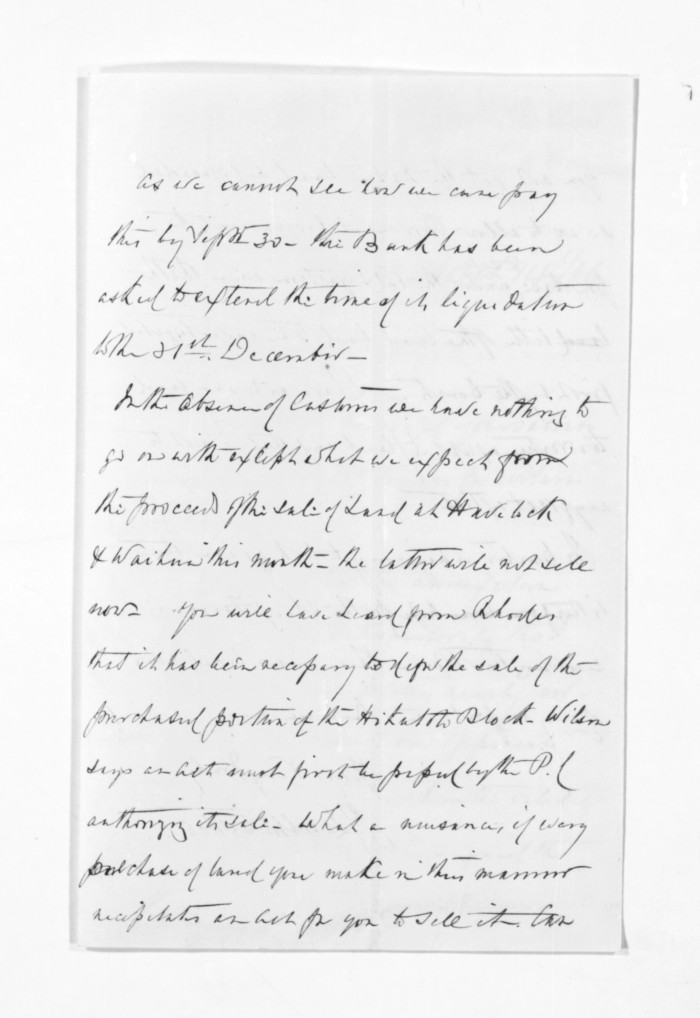 as we cannot see how we can pay
this by Septr 30 - the Bank has been
asked to extend the time of its liquidation
to the 31st December -
In the absence of Customs we have nothing to
go on with except what we expect from
the proceeds of the sale of Land at Havelock
& Waihua this month - the latter will not sell
now - You will have heard from Rhodes
that it has been necessary to defer the sale of the
purchased portion of the Hikutoto Block - Wilson
says an Act must first be passed by the P. C
authorizing its sale - What a nuisance, if every
purchase of land you make in this manner
necessitates an Act for you to sell it. Can